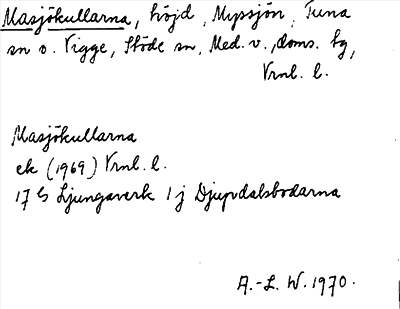 Masjökullarna, höjd, Myssjön, Tuna
sn o. Vigge, Stöde sn, Med. v., doms. tg,
Vrnl. l.
Masjökullarna
ek (1969) Vrnl. l.
17 G Ljungaverk 1 j Djupdalsbodarna
A.-L. W. 1970.